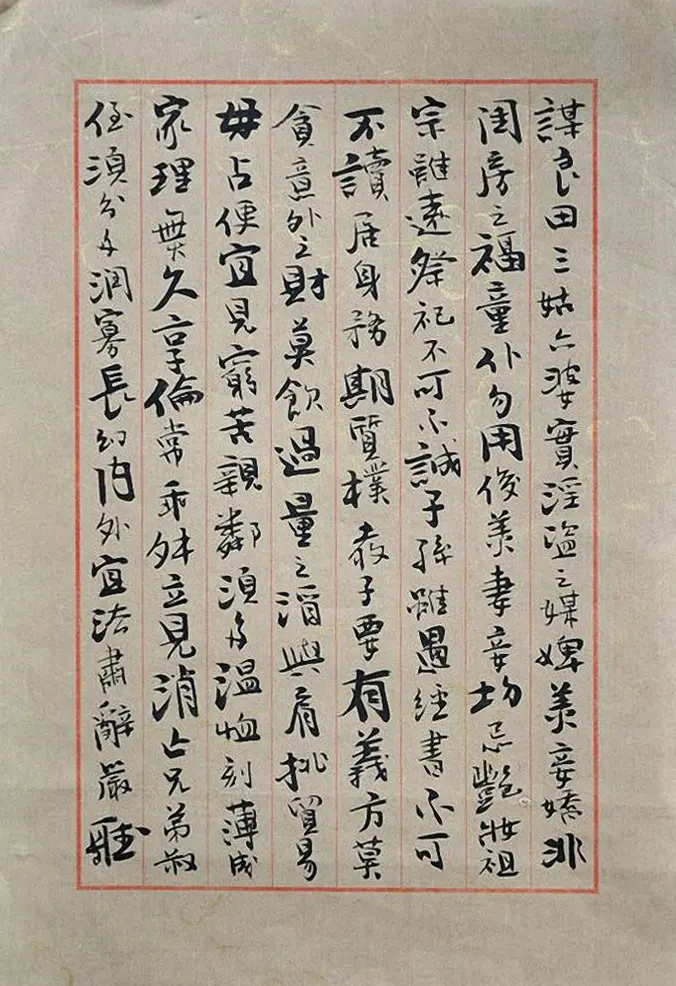 謀良田三姑六婆實淫盜之媒婢美妾嬌非
閨房之福童仆勿用俊美妻妾切忌艷妝祖
宗雖遠祭祀不可不誠子孫雖愚經書不可
不讀居身務期質樸教子要有義方莫
貪意外之財莫飲過量之酒與肩挑貿易
毋占便宜見窮苦親鄰須多溫恤刻薄成
家理無久享倫常乖舛立見消亡兄弟叔
侄須分多潤寡長幼內外宜法肅辭嚴聽